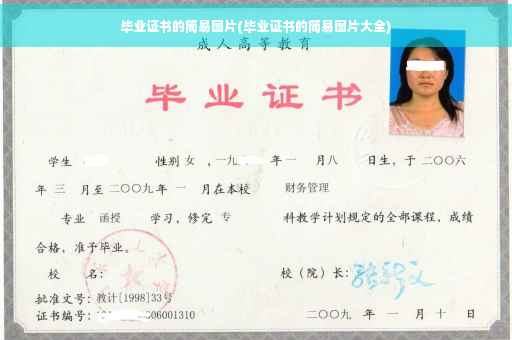 毕业证书的简易图片(毕业证书的简易图片大全)
成人高等教育
毕业证书
学生 性别 女 ,一九 年 一 月八 日生，于 二〇〇六
年 三 月至 二〇〇九 年 一 月在本校 财务管理
专业 函授 学习，修完 专 科教学计划规定的全部课程，成绩
合格，准予毕业。
校 名： 校（院）长：
批准文号：教计[1998]33号
证书编号： 06001310 二〇〇九 年 一 月 十 日